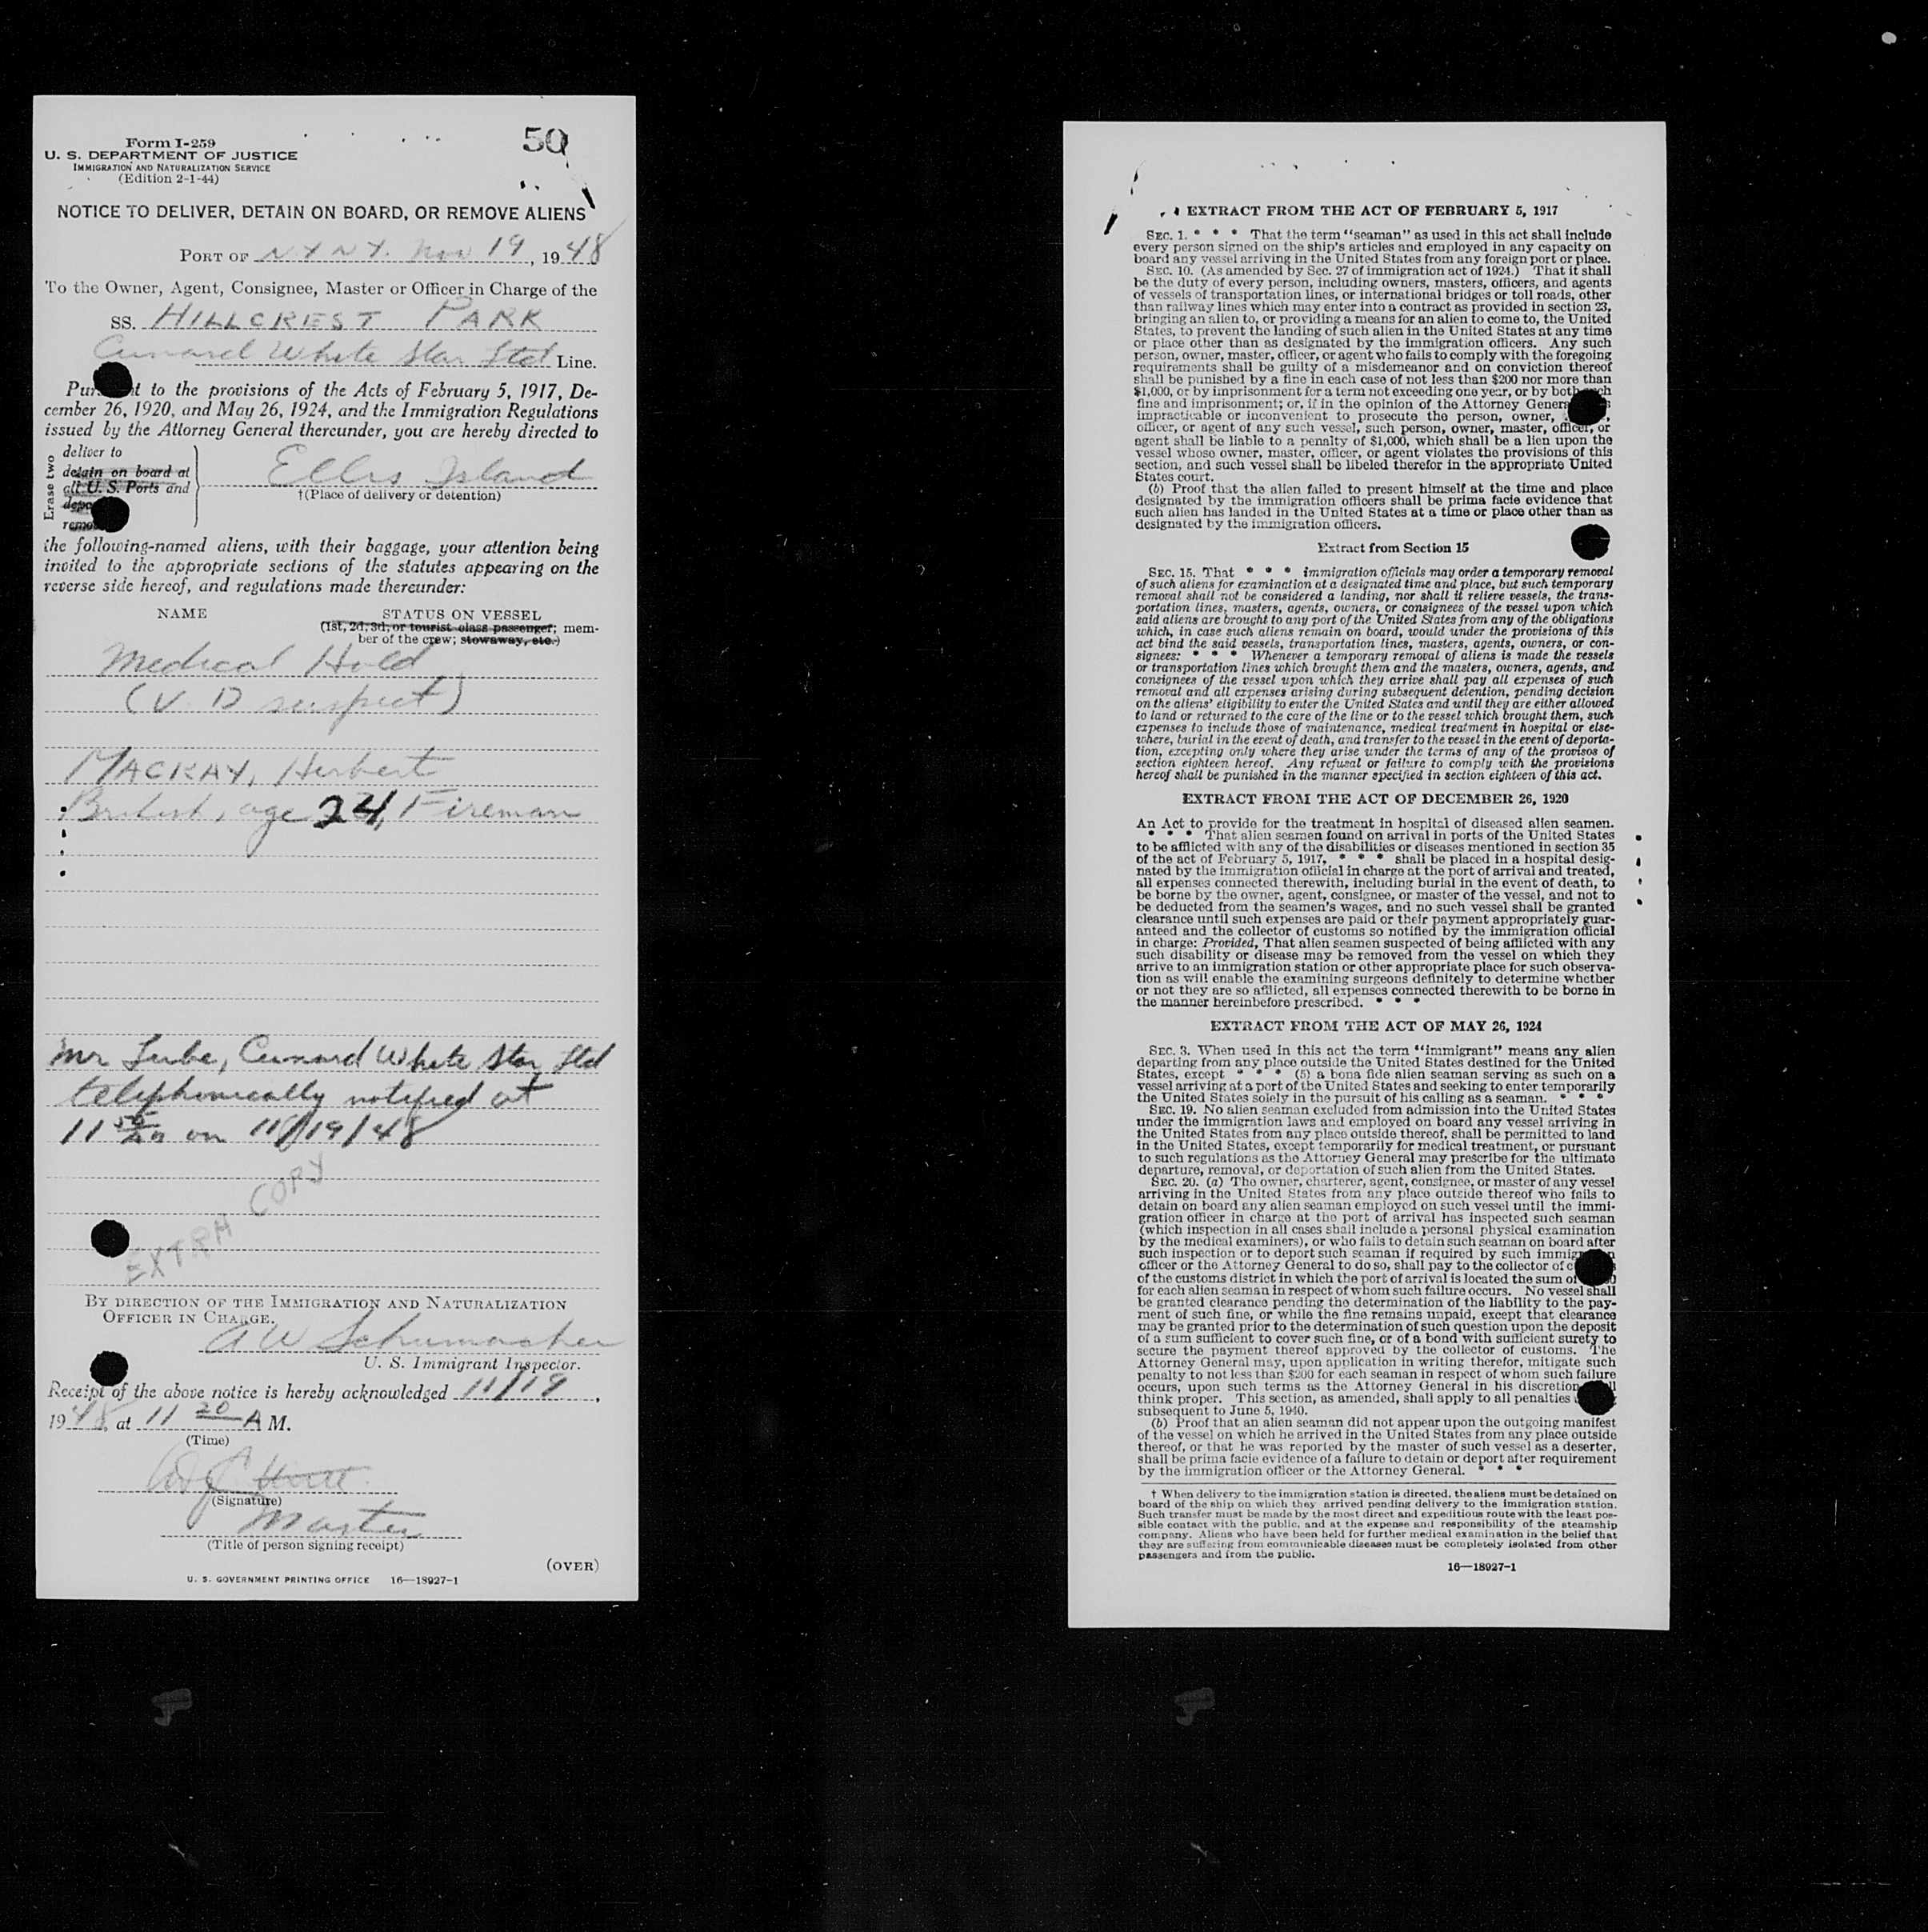 Form I-259
U. S. DEPARTMENT OF JUSTICE
IMMIGRATION AND NATURALIZATION SERVICE
(Edition 2-1-44)
50
NOTICE TO DELIVER, DETAIN ON BOARD, OR REMOVE ALIENS
PORT OF N Y N Y. Nov 19, 1948
To the Owner, Agent, Consignee, Master or Officer in Charge of the
SS. HILLCREST PARK
Cunard White Star Ltd Line.
to the provisions of the Acts of February 5, 1917, De-
cember 26, 1920, and May 26, 1924, and the Immigration Regulations
issued by the Attorney General thereunder, you are hereby directed to
Erase two
deliver to
detain on board at
all U. S. Ports and
Ellis Island
†(Place of delivery or detention)
the following-named aliens, with their baggage, your attention being
invited to the appropriate sections of the statutes appearing on the
reverse side hereof, and regulations made thereunder:
NAME STATUS ON VESSEL
(1st, 2d, 3d, or tourist class passenger; mem-
ber of the crew; stowaway, etc.)
Medical Hold
(V. D suspect)
MACKAY, Herbert
British, age 24, Fireman
Mr Cunard White Star Ltd
telephonically notified at
11 on 11/19/48
EXTRA COPY
BY DIRECTION OF THE IMMIGRATION AND NATURALIZATION
OFFICER IN CHARGE.
A W Schumacher
U. S. Immigrant Inspector.
Receipt of the above notice is hereby acknowledged 11/19,
1948, at 11 20 A M.
(Time)
(Signature)
Master
(Title of person signing receipt)
(OVER)
U. S. GOVERNMENT PRINTING OFFICE 16—18927-1
EXTRACT FROM THE ACT OF FEBRUARY 5, 1917
SEC. 1. * * * That the term "seaman" as used in this act shall include
every person signed on the ship's articles and employed in any capacity on
board any vessel arriving in the United States from any foreign port or place.
SEC. 10. (As amended by Sec. 27 of immigration act of 1924.) That it shall
be the duty of every person, including owners, masters, officers, and agents
of vessels of transportation lines, or international bridges or toll roads, other
than railway lines which may enter into a contract as provided in section 23,
bringing an alien to, or providing a means for an alien to come to, the United
States, to prevent the landing of such alien in the United States at any time
or place other than as designated by the immigration officers. Any such
person, owner, master, officer, or agent who fails to comply with the foregoing
requirements shall be guilty of a misdemeanor and on conviction thereof
shall be punished by a fine in each case of not less than $200 nor more than
$1,000, or by imprisonment for a term not exceeding one year, or by both such
fine and imprisonment; or, if in the opinion of the Attorney General
impracticable or inconvenient to prosecute the person, owner,
officer, or agent of any such vessel, such person, owner, master, officer, or
agent shall be liable to a penalty of $1,000, which shall be a lien upon the
vessel whose owner, master, officer, or agent violates the provisions of this
section, and such vessel shall be libeled therefor in the appropriate United
States court.
(b) Proof that the alien failed to present himself at the time and place
designated by the immigration officers shall be prima facie evidence that
such alien has landed in the United States at a time or place other than as
designated by the immigration officers.
Extract from Section 15
SEC. 15. That * * * immigration officials may order a temporary removal
of such aliens for examination at a designated time and place, but such temporary
removal shall not be considered a landing, nor shall it relieve vessels, the trans-
portation lines, masters, agents, owners, or consignees of the vessel upon which
said aliens are brought to any port of the United States from any of the obligations
which, in case such aliens remain on board, would under the provisions of this
act bind the said vessels, transportation lines, masters, agents, owners, or con-
signees: * * * Whenever a temporary removal of aliens is made the vessels
or transportation lines which brought them and the masters, owners, agents, and
consignees of the vessel upon which they arrive shall pay all expenses of such
removal and all expenses arising during subsequent detention, pending decision
on the aliens' eligibility to enter the United States and until they are either allowed
to land or returned to the care of the line or to the vessel which brought them, such
expenses to include those of maintenance, medical treatment in hospital or else-
where, burial in the event of death, and transfer to the vessel in the event of deporta-
tion, excepting only where they arise under the terms of any of the provisos of
section eighteen hereof. Any refusal or failure to comply with the provisions
hereof shall be punished in the manner specified in section eighteen of this act.
EXTRACT FROM THE ACT OF DECEMBER 26, 1920
An Act to provide for the treatment in hospital of diseased alien seamen.
* * * That alien seamen found on arrival in ports of the United States
to be afflicted with any of the disabilities or diseases mentioned in section 35
of the act of February 5, 1917, * * * shall be placed in a hospital desig-
nated by the immigration official in charge at the port of arrival and treated,
all expenses connected therewith, including burial in the event of death, to
be borne by the owner, agent, consignee, or master of the vessel, and not to
be deducted from the seamen's wages, and no such vessel shall be granted
clearance until such expenses are paid or their payment appropriately guar-
anteed and the collector of customs so notified by the immigration official
in charge: Provided, That alien seamen suspected of being afflicted with any
such disability or disease may be removed from the vessel on which they
arrive to an immigration station or other appropriate place for such observa-
tion as will enable the examining surgeons definitely to determine whether
or not they are so afflicted, all expenses connected therewith to be borne in
the manner hereinbefore prescribed. * * *
EXTRACT FROM THE ACT OF MAY 26, 1924
SEC. 3. When used in this act the term "immigrant" means any alien
departing from any place outside the United States destined for the United
States, except * * * (5) a bona fide alien seaman serving as such on a
vessel arriving at a port of the United States and seeking to enter temporarily
the United States solely in the pursuit of his calling as a seaman. * * *
SEC. 19. No alien seaman excluded from admission into the United States
under the immigration laws and employed on board any vessel arriving in
the United States from any place outside thereof, shall be permitted to land
in the United States, except temporarily for medical treatment, or pursuant
to such regulations as the Attorney General may prescribe for the ultimate
departure, removal, or deportation of such alien from the United States.
SEC. 20. (a) The owner, charterer, agent, consignee, or master of any vessel
arriving in the United States from any place outside thereof who fails to
detain on board any alien seaman employed on such vessel until the immi-
gration officer in charge at the port of arrival has inspected such seaman
(which inspection in all cases shall include a personal physical examination
by the medical examiners), or who fails to detain such seaman on board after
such inspection or to deport such seaman if required by such immigration
officer or the Attorney General to do so, shall pay to the collector of
of the customs district in which the port of arrival is located the sum of
for each alien seaman in respect of whom such failure occurs. No vessel shall
be granted clearance pending the determination of the liability to the pay-
ment of such fine, or while the fine remains unpaid, except that clearance
may be granted prior to the determination of such question upon the deposit
of a sum sufficient to cover such fine, or of a bond with sufficient surety to
secure the payment thereof approved by the collector of customs. The
Attorney General may, upon application in writing therefor, mitigate such
penalty to not less than $200 for each seaman in respect of whom such failure
occurs, upon such terms as the Attorney General in his discretion
think proper. This section, as amended, shall apply to all penalties
subsequent to June 5, 1940.
(b) Proof that an alien seaman did not appear upon the outgoing manifest
of the vessel on which he arrived in the United States from any place outside
thereof, or that he was reported by the master of such vessel as a deserter,
shall be prima facie evidence of a failure to detain or deport after requirement
by the immigration officer or the Attorney General. * * *
† When delivery to the immigration station is directed, the aliens must be detained on
board of the ship on which they arrived pending delivery to the immigration station.
Such transfer must be made by the most direct and expeditious route with the least pos-
sible contact with the public, and at the expense and responsibility of the steamship
company. Aliens who have been held for further medical examination in the belief that
they are suffering from communicable diseases must be completely isolated from other
passengers and from the public.
16—18927-1